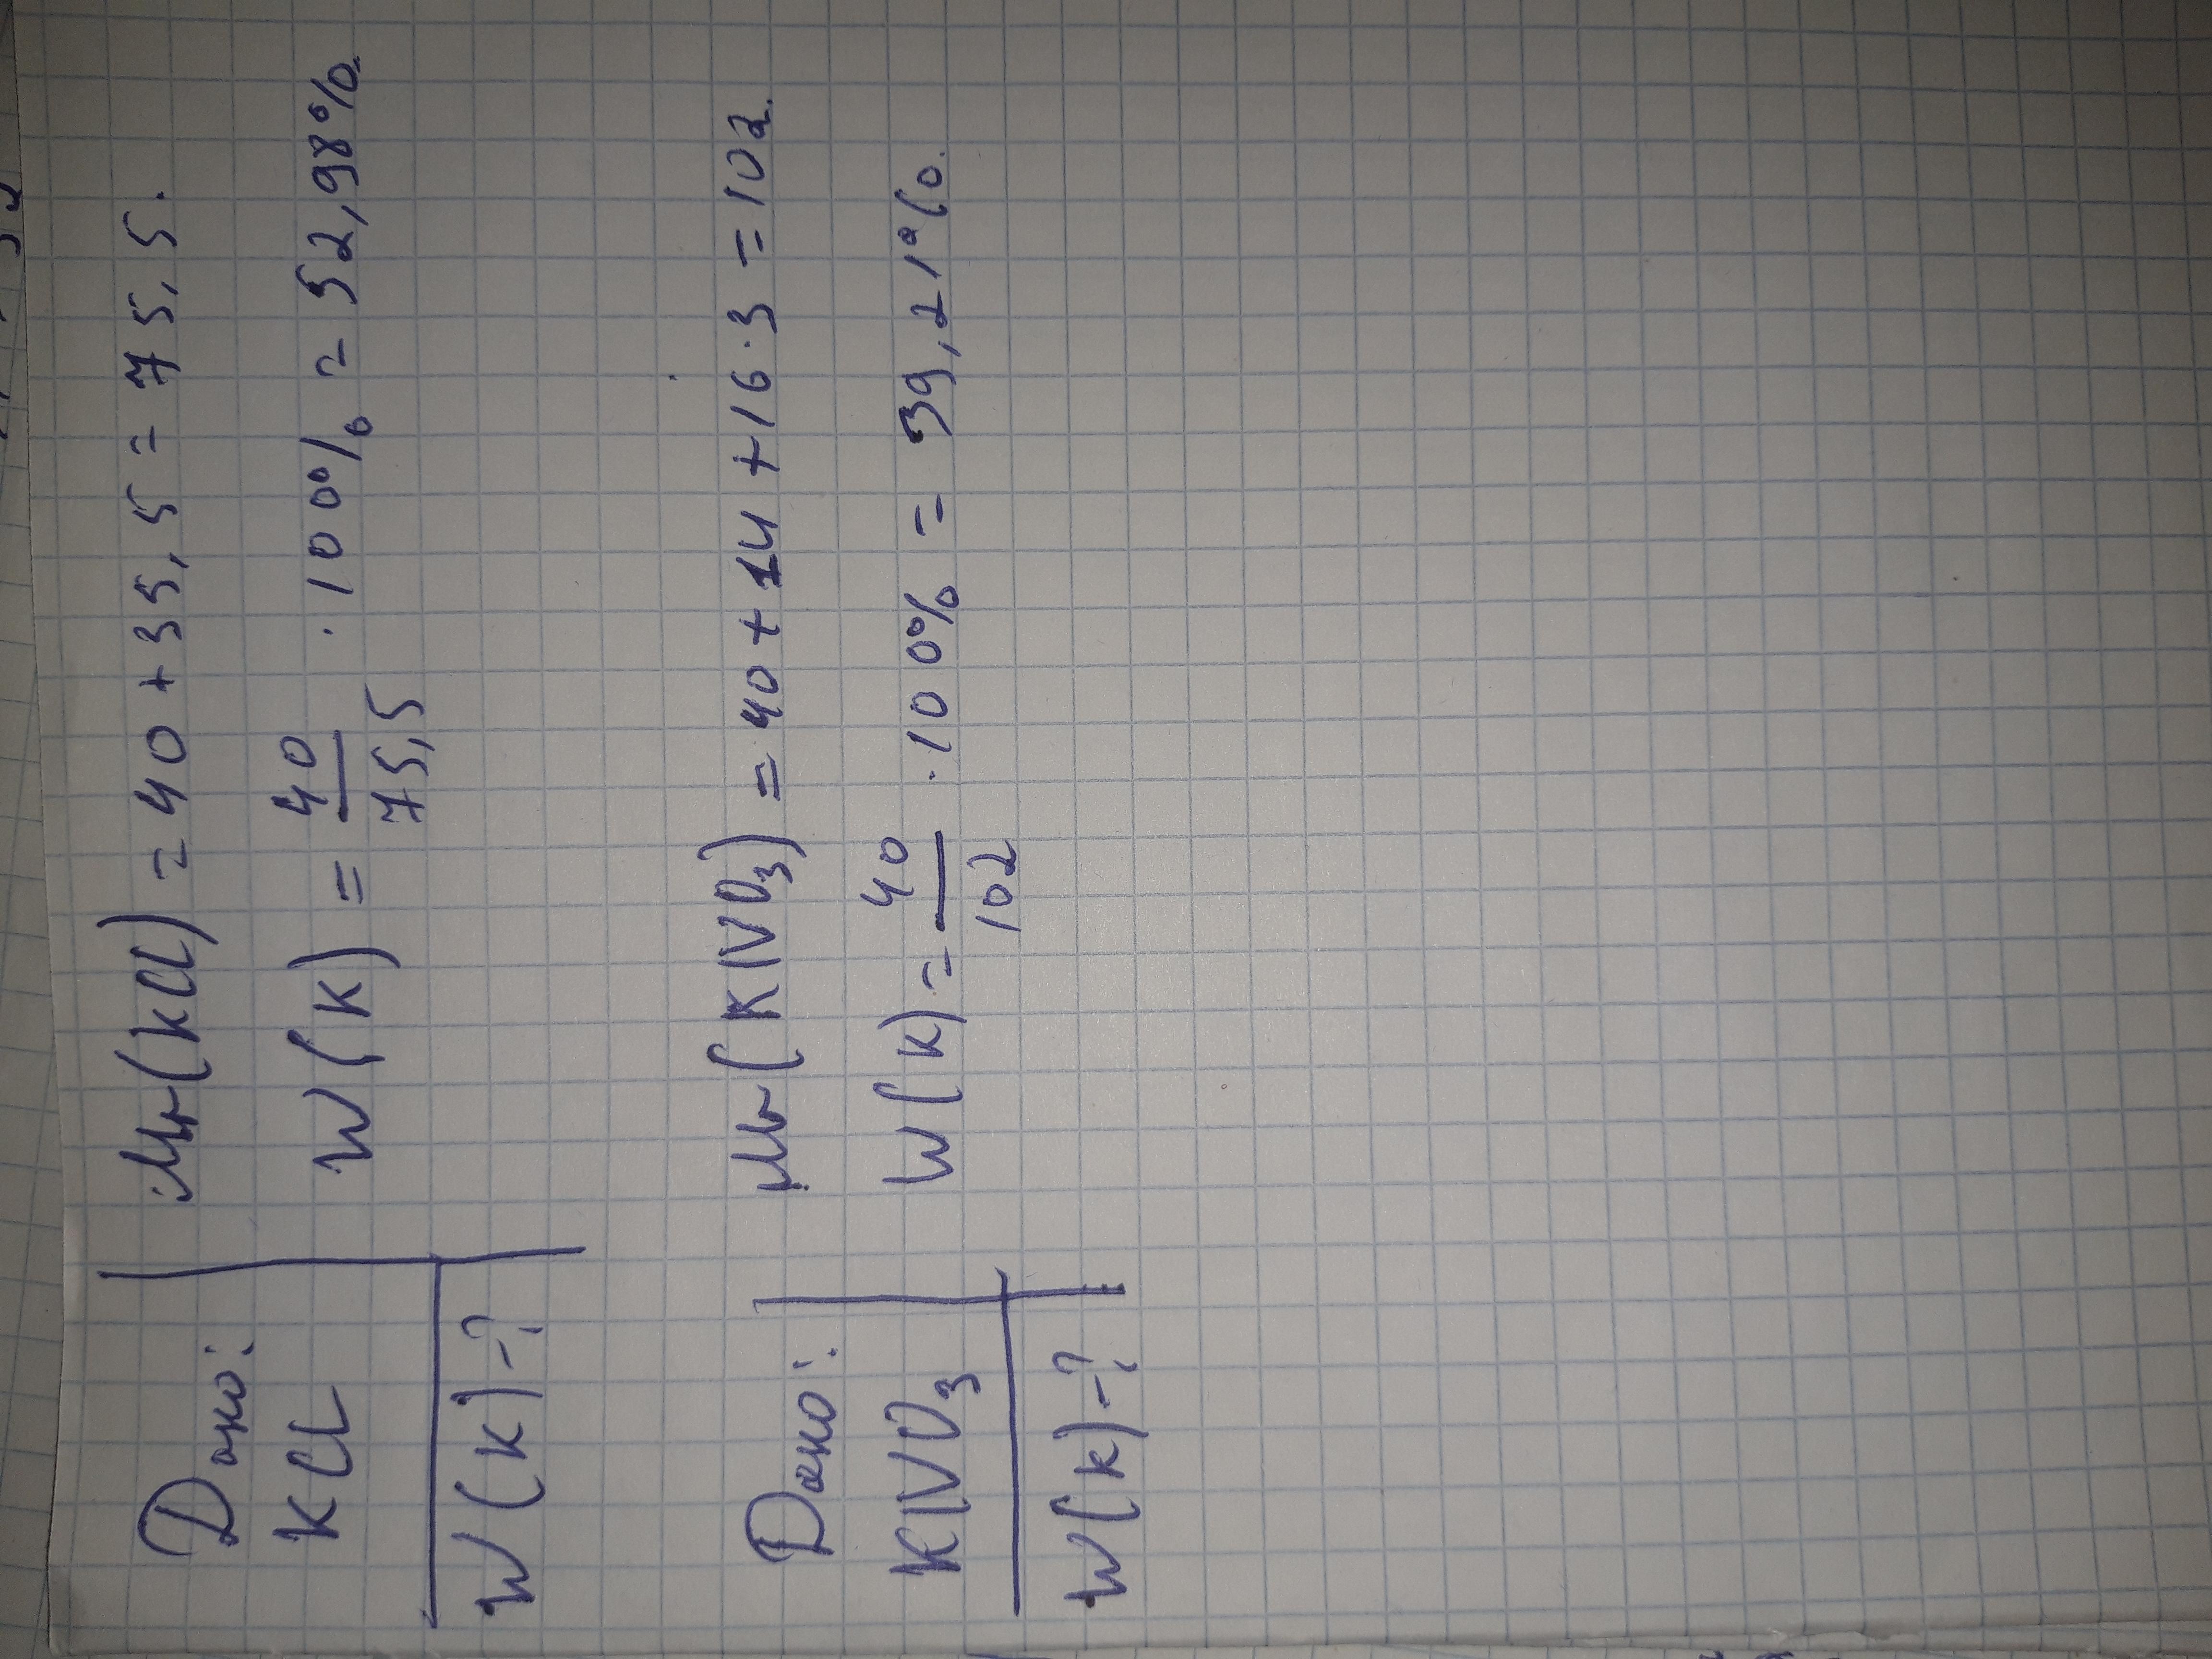 Дано:
KCl
W(K)-?
Mr(KCl) = 40 + 35,5 = 75,5.
W(K) = 40/75,5 · 100% = 52,98%.
Дано:
KNO₃
W(K)-?
Mr(KNO₃) = 40 + 14 + 16·3 = 102.
W(K) = 40/102 · 100% = 39,21%.